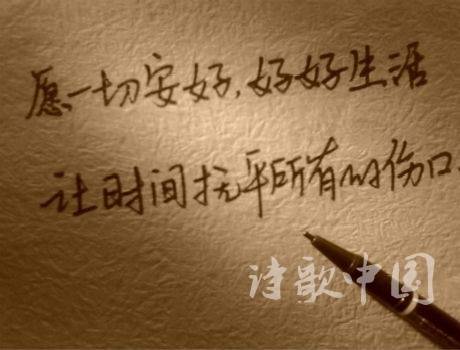 愿一切安好,好好生活
让时间抚平所有的伤口.
诗歌中国